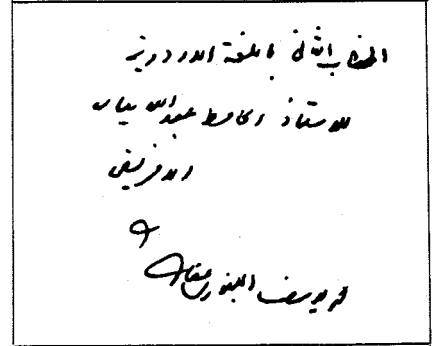 الخطاب الثاني باللغة الاردوية
للاستاذ الحافظ عبد الله
الافريقي
محمد يوسف البنوري